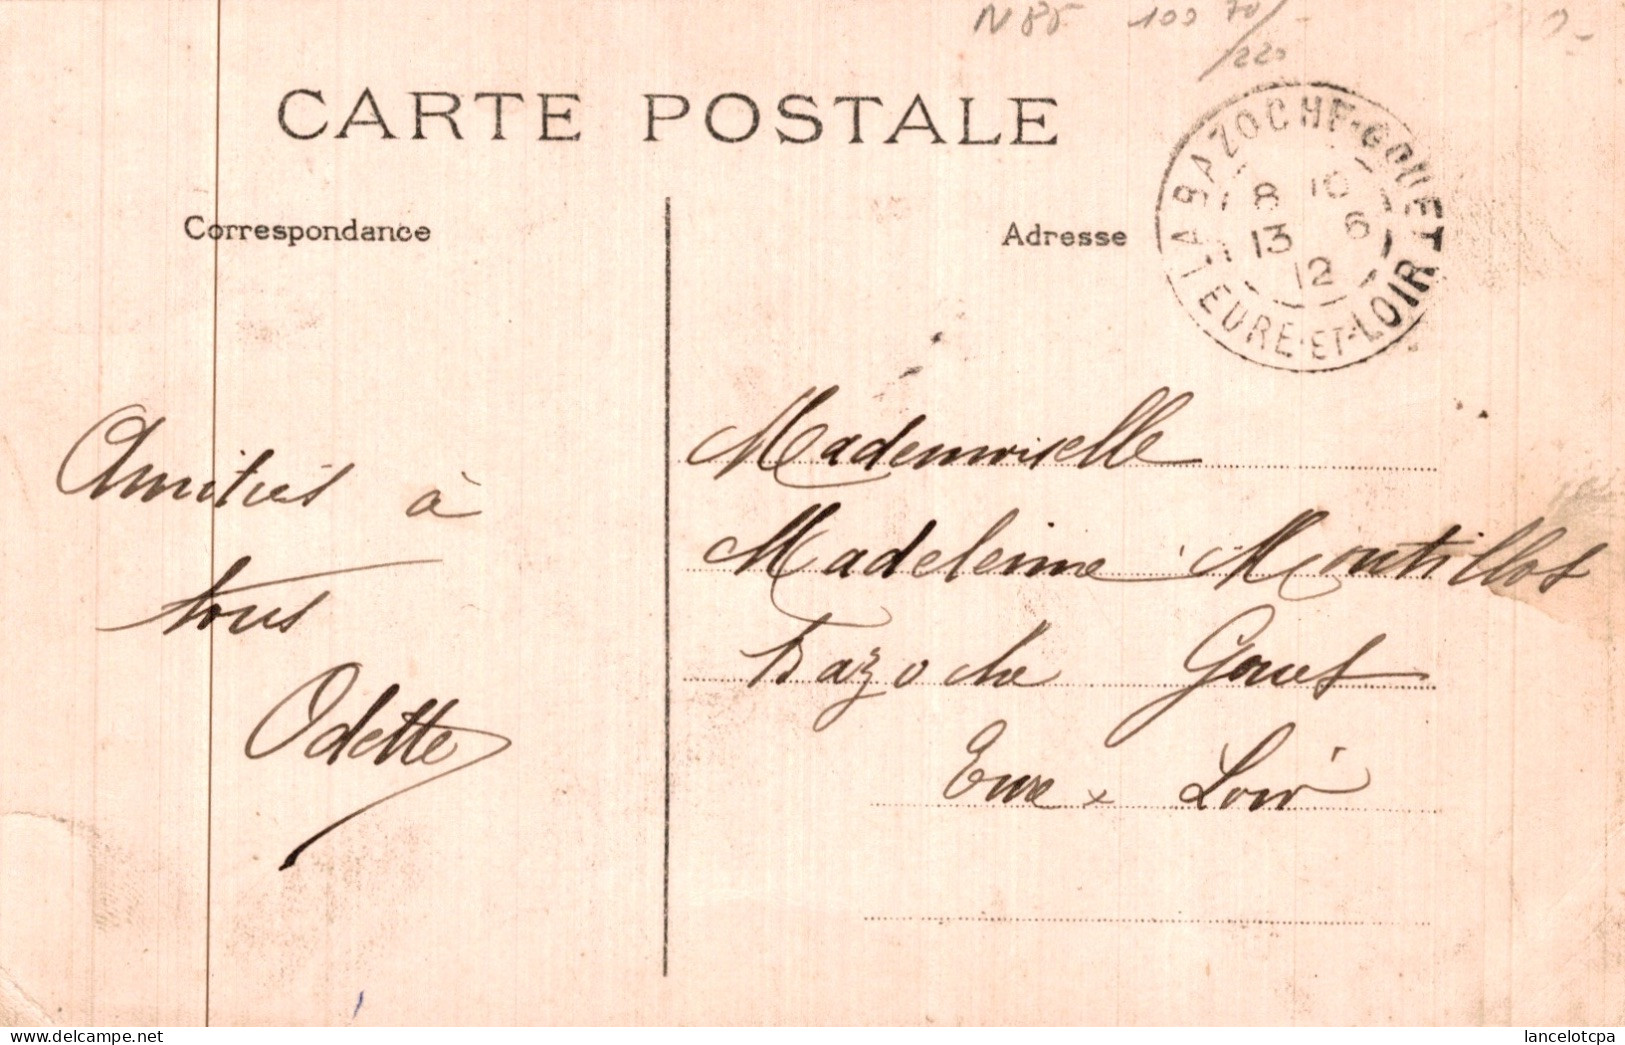 N 85 100 70/-
/220
CARTE POSTALE
Correspondance
Adresse
LA BAZOCHE-GOUET
8 10
13 6
12
EURE-ET-LOIR
Amitiés à
tous
Odette
Mademoiselle
Madeleine Montillot
Bazoche Gouet
Eure & Loir
delcampe.net
lancelotcpa